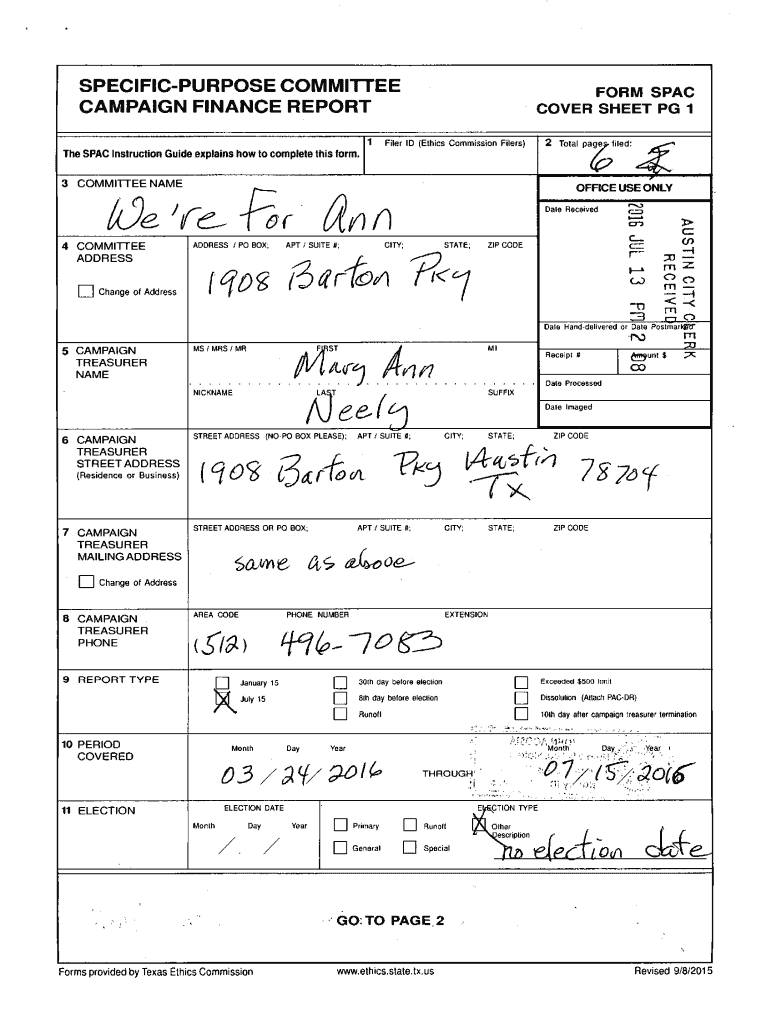 SPECIFIC-PURPOSE COMMITTEE
CAMPAIGN FINANCE REPORT
FORM SPAC
COVER SHEET PG 1
The SPAC Instruction Guide explains how to complete this form.
1 Filer ID (Ethics Commission Filers)
2 Total pages filed:
6
3 COMMITTEE NAME
We're For Ann
OFFICE USE ONLY
Date Received
AUSTIN CITY CLERK
RECEIVED
2016 JUL 13 PM 2 08
4 COMMITTEE
ADDRESS
Change of Address
ADDRESS / PO BOX; APT / SUITE #; CITY; STATE; ZIP CODE
1908 Barton Pky
Date Hand-delivered or Date Postmarked
5 CAMPAIGN
TREASURER
NAME
MS / MRS / MR FIRST MI
Mary Ann
NICKNAME LAST SUFFIX
Neely
Receipt # Amount $
Date Processed
Date Imaged
6 CAMPAIGN
TREASURER
STREET ADDRESS
(Residence or Business)
STREET ADDRESS (NO PO BOX PLEASE); APT / SUITE #; CITY; STATE; ZIP CODE
1908 Barton Pky Austin 78704
TX
7 CAMPAIGN
TREASURER
MAILING ADDRESS
Change of Address
STREET ADDRESS OR PO BOX; APT / SUITE #; CITY; STATE; ZIP CODE
same as above
8 CAMPAIGN
TREASURER
PHONE
AREA CODE PHONE NUMBER EXTENSION
(512) 496-7083
9 REPORT TYPE
January 15 30th day before election Exceeded $500 limit
July 15 8th day before election Dissolution (Attach PAC-DR)
Runoff 10th day after campaign treasurer termination
10 PERIOD
COVERED
Month Day Year Month Day Year
03/24/2016 THROUGH 07/15/2016
11 ELECTION
ELECTION DATE ELECTION TYPE
Month Day Year Primary Runoff Other
Description
/ / General Special no election date
GO TO PAGE 2
Forms provided by Texas Ethics Commission www.ethics.state.tx.us Revised 9/8/2015